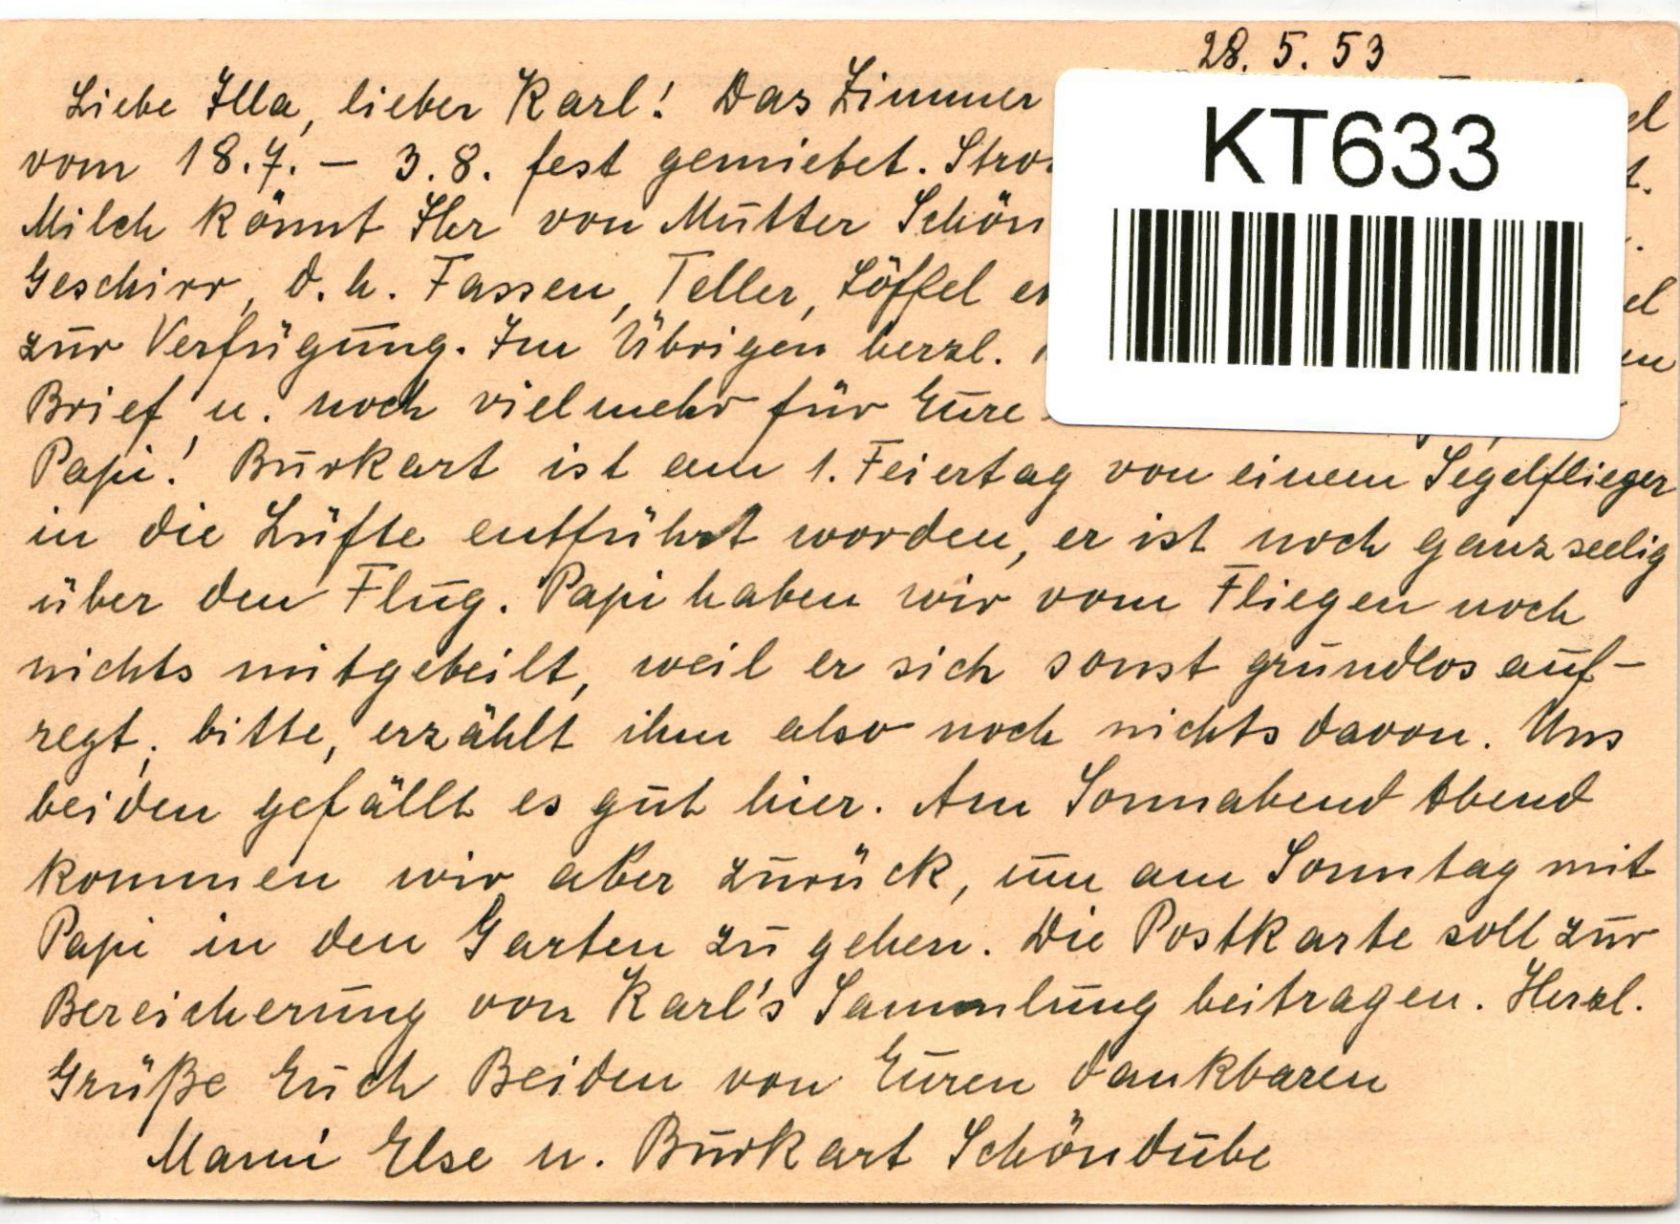 28. 5. 53
Liebe Illa, lieber Karl! Das Zimmer
vom 18.7. – 3.8. fest gemietet.
Milch könnt Ihr von Mutter Schön
Geschirr, d. h. Tassen, Teller, Löffel
zur Verfügung. Im Übrigen herzl.
Brief u. noch vielmehr für Eure
Papi! Burkart ist am 1. Feiertag von einem Segelflieger
in die Lüfte entführt worden, er ist noch ganz seelig
über den Flug. Papi haben wir vom Fliegen noch
nichts mitgeteilt, weil er sich sonst grundlos auf-
regt, bitte, erzählt ihm also noch nichts davon. Uns
beiden gefällt es gut hier. Am Sonnabend Abend
kommen wir aber zurück, um am Sonntag mit
Papi in den Garten zu gehen. Die Postkarte soll zur
Bereicherung von Karl's Sammlung beitragen. Herzl.
Grüße Euch Beiden von Euren dankbaren
Mami Else u. Burkart Schöndube
KT633